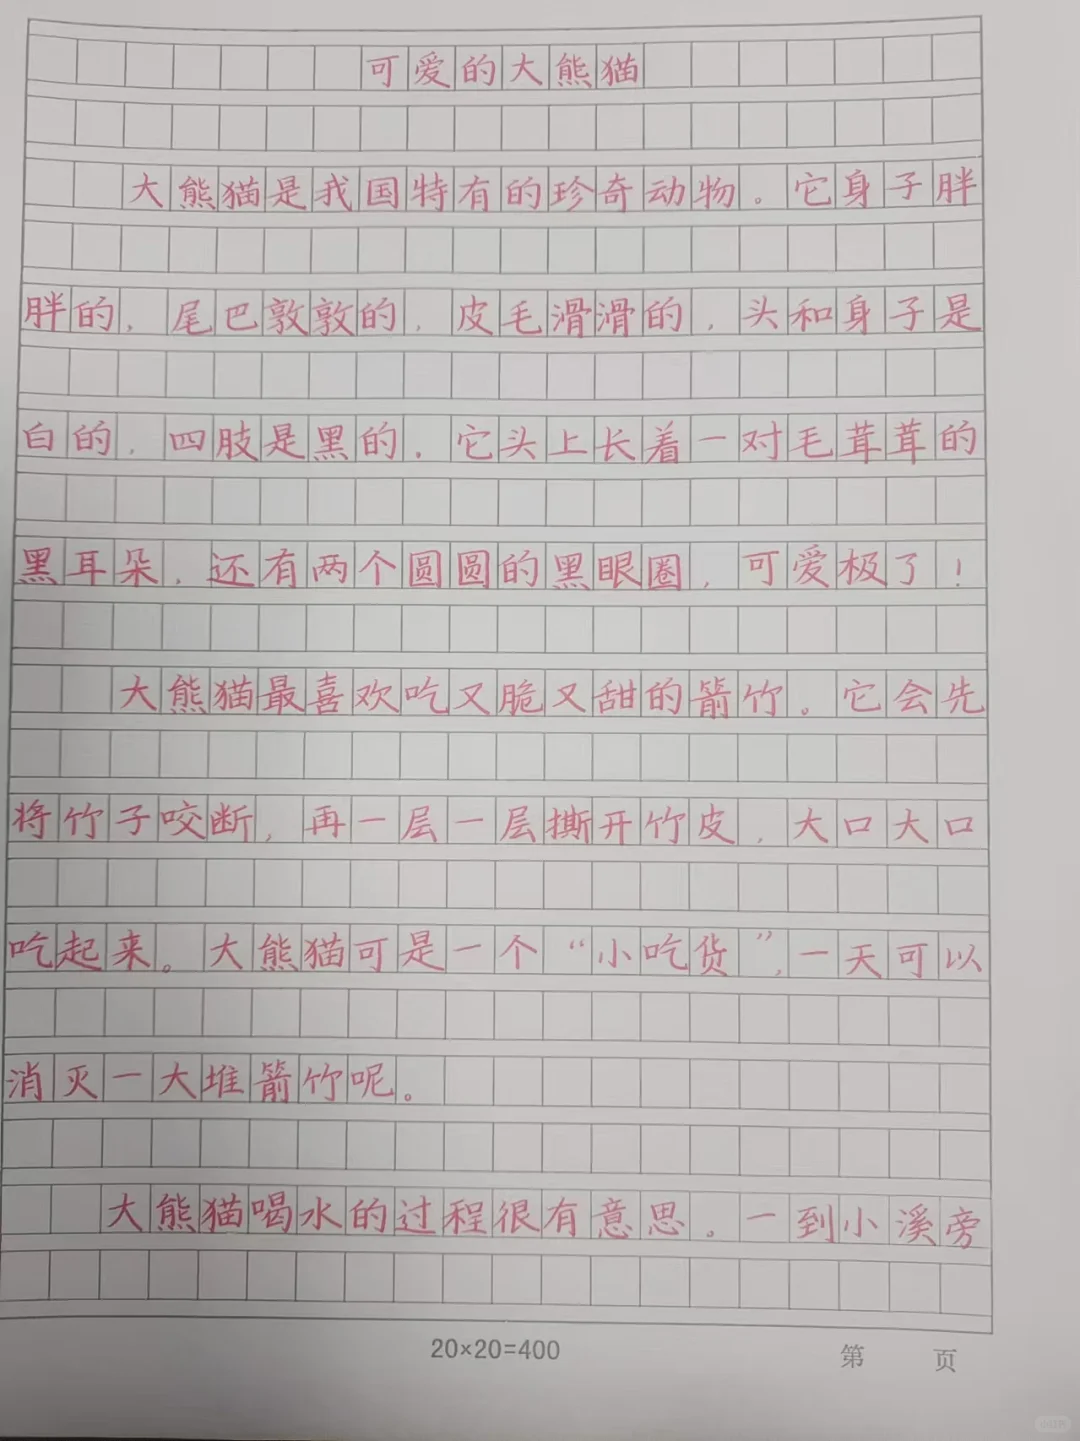 可爱的大熊猫
大熊猫是我国特有的珍奇动物。它身子胖
胖的，尾巴敦敦的，皮毛滑滑的，头和身子是
白的，四肢是黑的，它头上长着一对毛茸茸的
黑耳朵，还有两个圆圆的黑眼圈，可爱极了！
大熊猫最喜欢吃又脆又甜的箭竹。它会先
将竹子咬断，再一层一层撕开竹皮，大口大口
吃起来。大熊猫可是一个“小吃货”，一天可以
消灭一大堆箭竹呢。
大熊猫喝水的过程很有意思。一到小溪旁
20×20=400
第 页